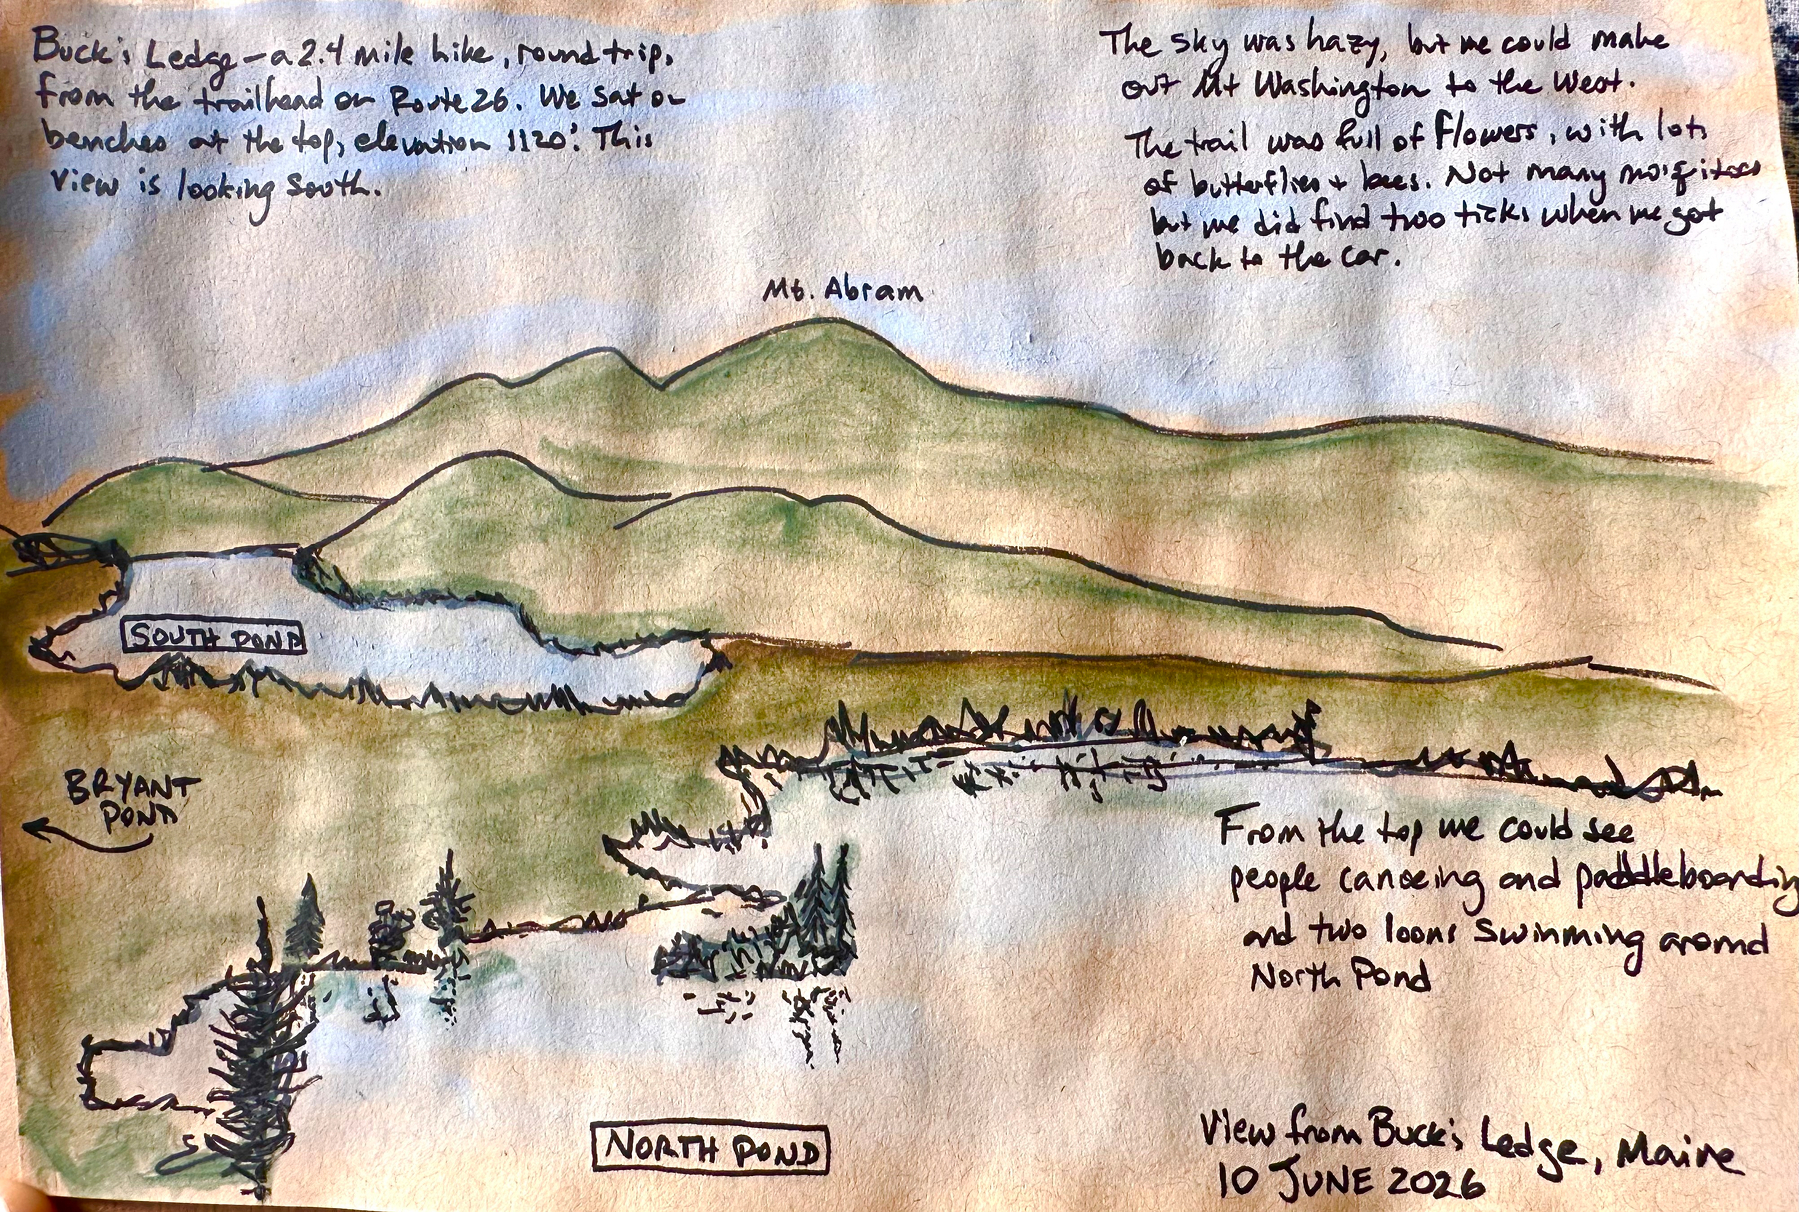 Buck's Ledge - a 2.4 mile hike, round trip,
from the trailhead on Route 26. We sat on
benches at the top, elevation 1120'. This
view is looking south.
The sky was hazy, but we could make
out Mt Washington to the West.
The trail was full of flowers, with lots
of butterflies + bees. Not many mosqitoes
but we did find two ticks when we got
back to the car.
Mt. Abram
SOUTH POND
BRYANT
POND
From the top we could see
people canoeing and paddleboarding
and two loons swimming around
North Pond
NORTH POND
View from Buck's Ledge, Maine
10 JUNE 2026